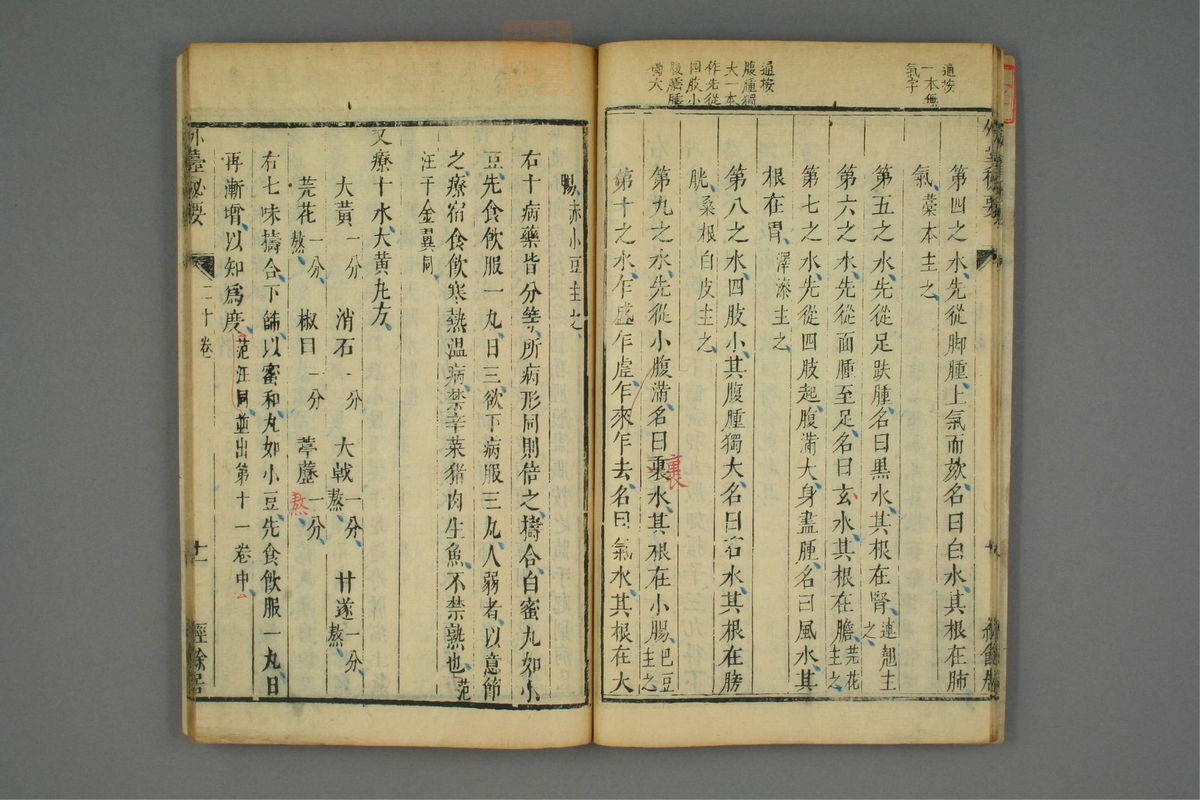 第四之水先從脚腫上氣而欬名曰白水其根在肺
氣藁本主之
第五之水先從足趺腫名曰黑水其根在腎連翹主之
第六之水先從面腫至足名曰玄水其根在膽芫花主之
第七之水先從四肢起腹滿大身盡腫名曰風水其
根在胃澤漆主之
第八之水四肢小其腹腫獨大名曰石水其根在膀
胱桑根白皮主之
第九之水先從小腹滿名曰裹水其根在小腸巴豆主之
裏
第十之水乍盛乍虛乍來乍去名曰氣水其根在大
通按
一本無
氣字
通按
腹腫獨
大一本
作先從
四肢小
腹腫
獨大
外臺秘要
經餘居
腸赤小豆主之
右十病藥皆分等所病形同則倍之擣合白蜜丸如小
豆先食飲服一丸日三欲下病服三丸人弱者以意節
之療宿食飲寒熱温病禁辛菜猪肉生魚不禁熟也范
汪千金翼同
又療十水大黃丸方
大黃一分 消石一分 大戟熬一分 甘遂熬一分
芫花熬一分 椒目一分 葶藶熬一分
右七味擣合下篩以蜜和丸如小豆先食飲服一丸日
再漸增以知爲度范汪同並出第十一卷中
外臺秘要 二十卷 十一 經餘居